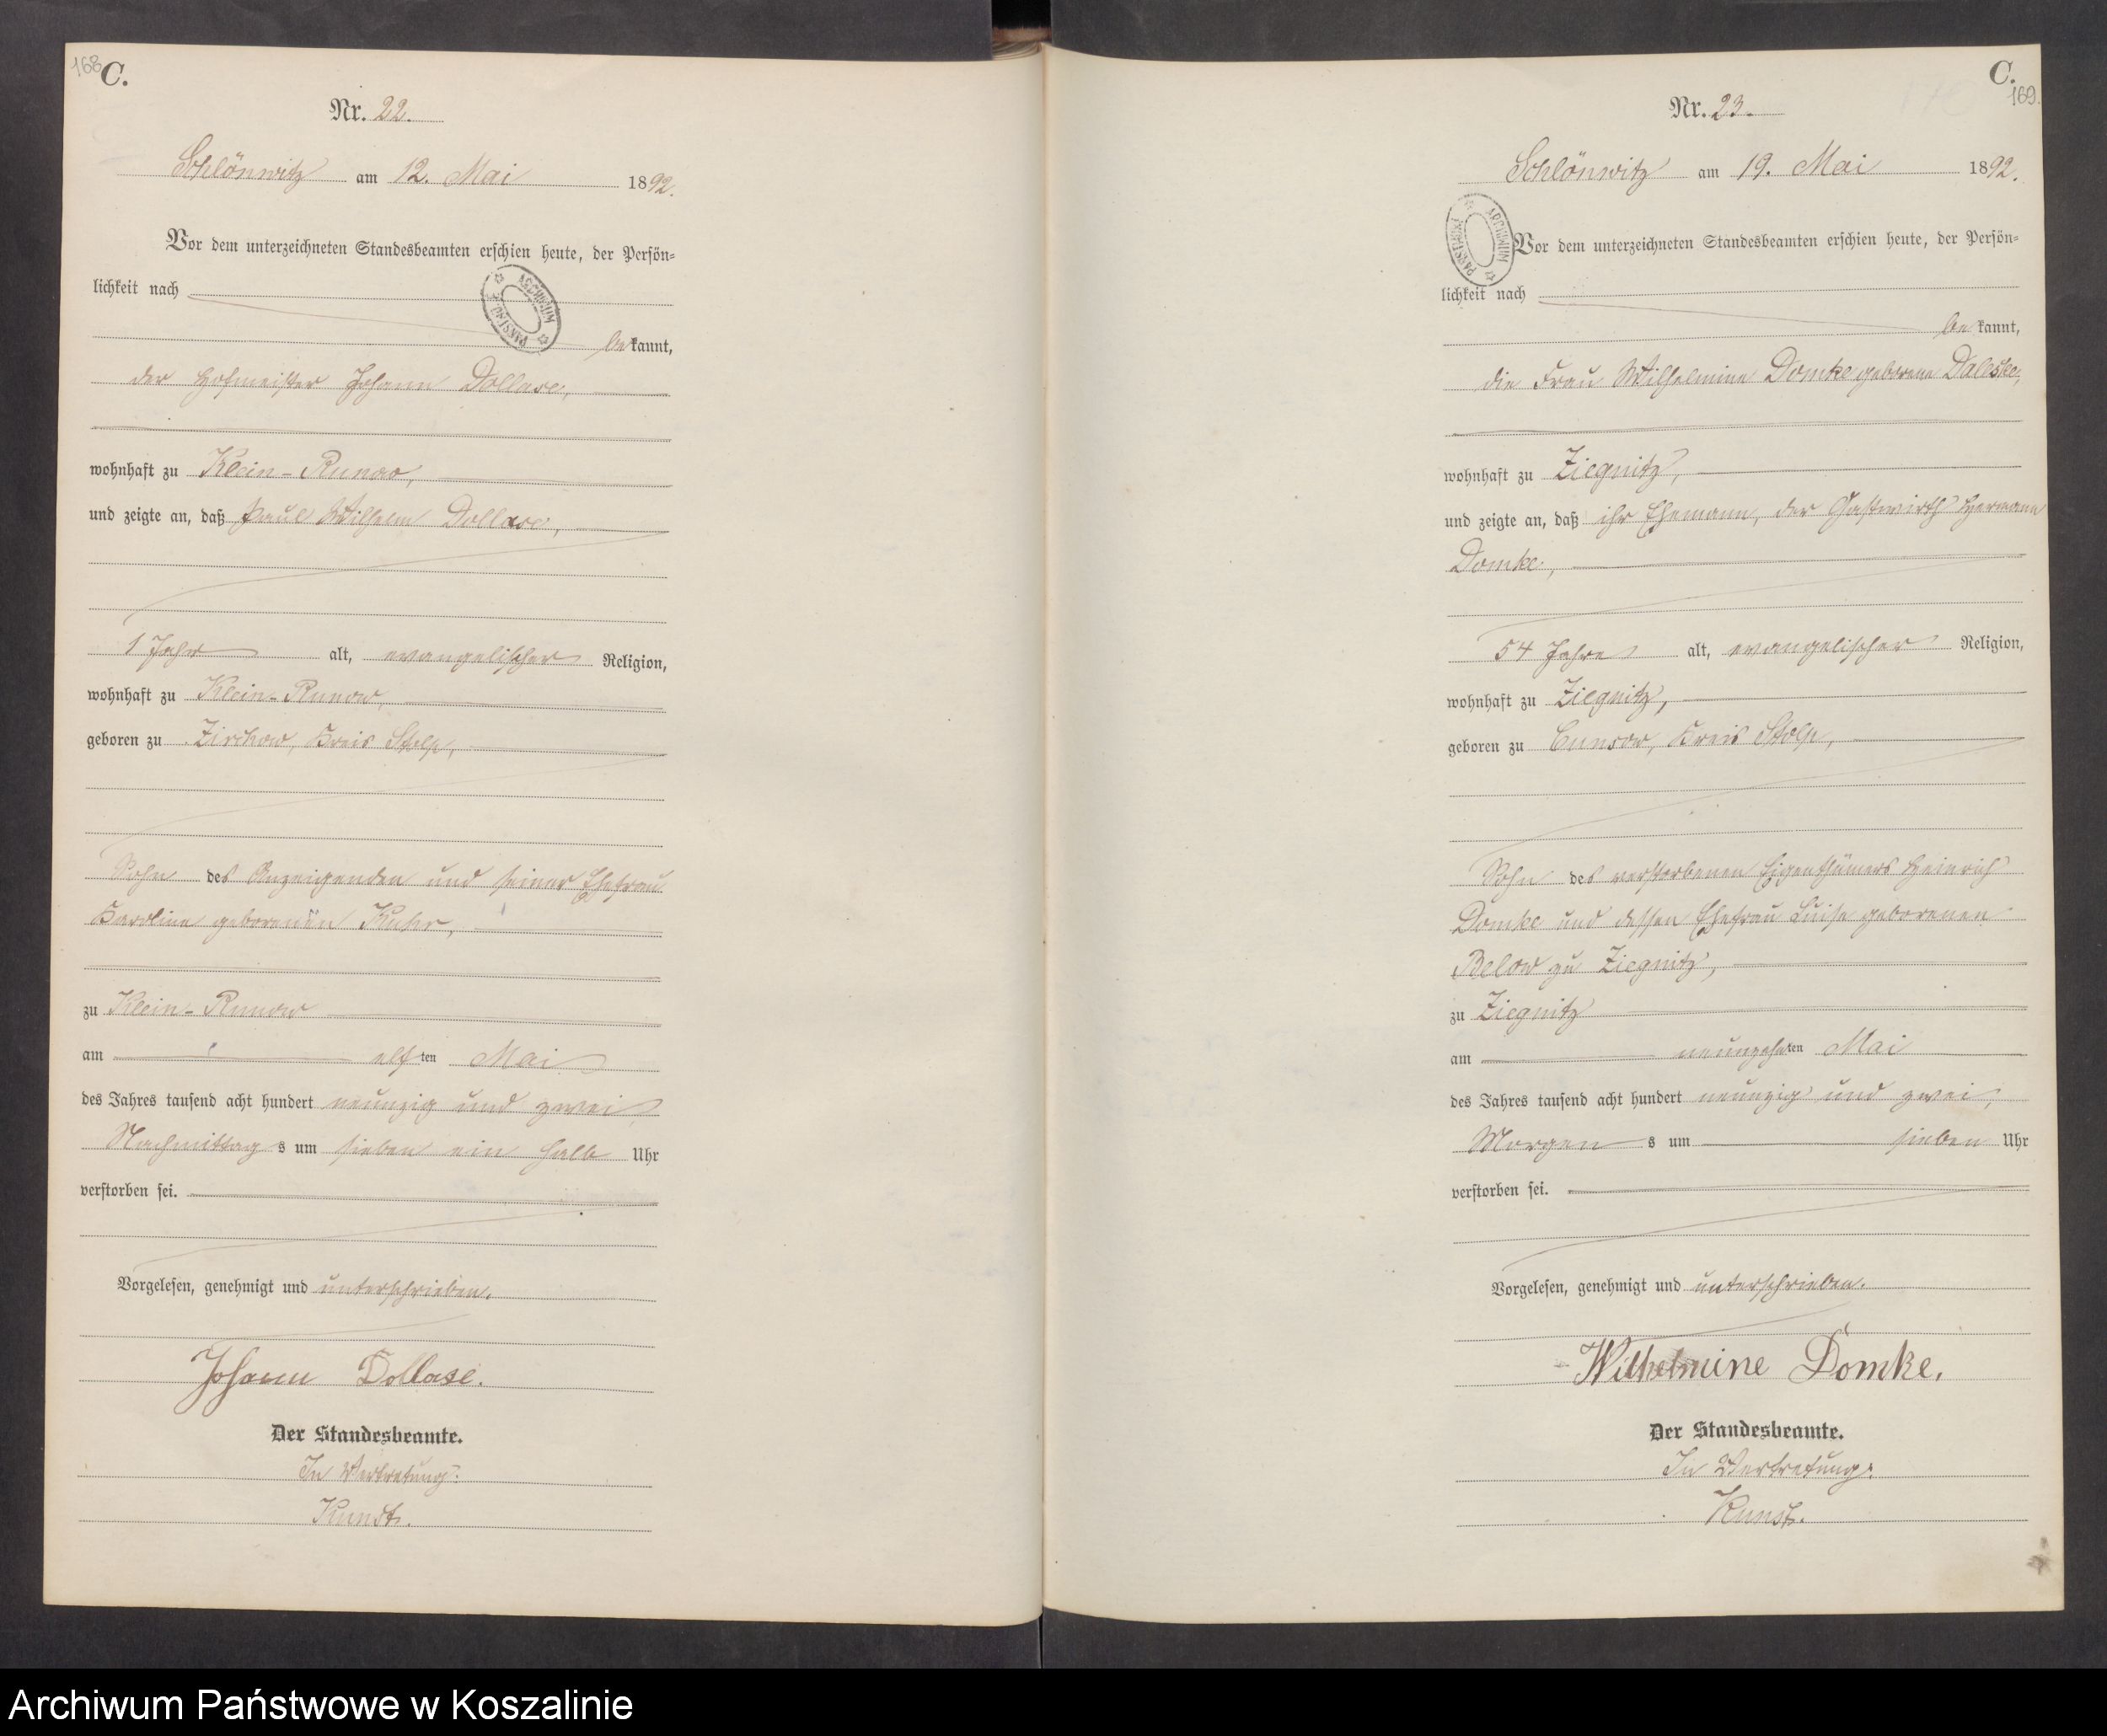 168
C.
Nr. 22.
Schlönwitz am 12. Mai 1892.
Vor dem unterzeichneten Standesbeamten erschien heute, der Persön-
lichkeit nach
bekannt,
der Hofmeister Johann Dollase,
wohnhaft zu Klein-Runow,
und zeigte an, daß Paul Wilhelm Dollase,
1 Jahr alt, evangelischer Religion,
wohnhaft zu Klein-Runow,
geboren zu Zirchow, Kreis Stolp,
Sohn des Anzeigenden und seiner Ehefrau
Karoline geborenen
zu Klein-Runow
am elften Mai
des Jahres tausend acht hundert neunzig und zwei,
Nachmittags um sieben ein halb Uhr
verstorben sei.
Vorgelesen, genehmigt und unterschrieben.
Johann Dollase.
Der Standesbeamte.
In Vertretung:
Kunst.
ARCHIWUM PAŃSTWOWE
C.
169.
Nr. 23.
Schlönwitz am 19. Mai 1892.
Vor dem unterzeichneten Standesbeamten erschien heute, der Persön-
lichkeit nach
bekannt,
die Frau Wilhelmine Domke geborene Daleske,
wohnhaft zu Ziegnitz,
und zeigte an, daß ihr Ehemann, der Gastwirth Hermann
Domke,
54 Jahre alt, evangelischer Religion,
wohnhaft zu Ziegnitz,
geboren zu Cunsow, Kreis Stolp,
Sohn des verstorbenen Eigenthümers Heinrich
Domke und dessen Ehefrau Luise geborenen
Below zu Ziegnitz,
zu Ziegnitz
am neunzehnten Mai
des Jahres tausend acht hundert neunzig und zwei,
Morgens um sieben Uhr
verstorben sei.
Vorgelesen, genehmigt und unterschrieben.
Wilhelmine Domke.
Der Standesbeamte.
In Vertretung:
Kunst.
ARCHIWUM PAŃSTWOWE
Archiwum Państwowe w Koszalinie